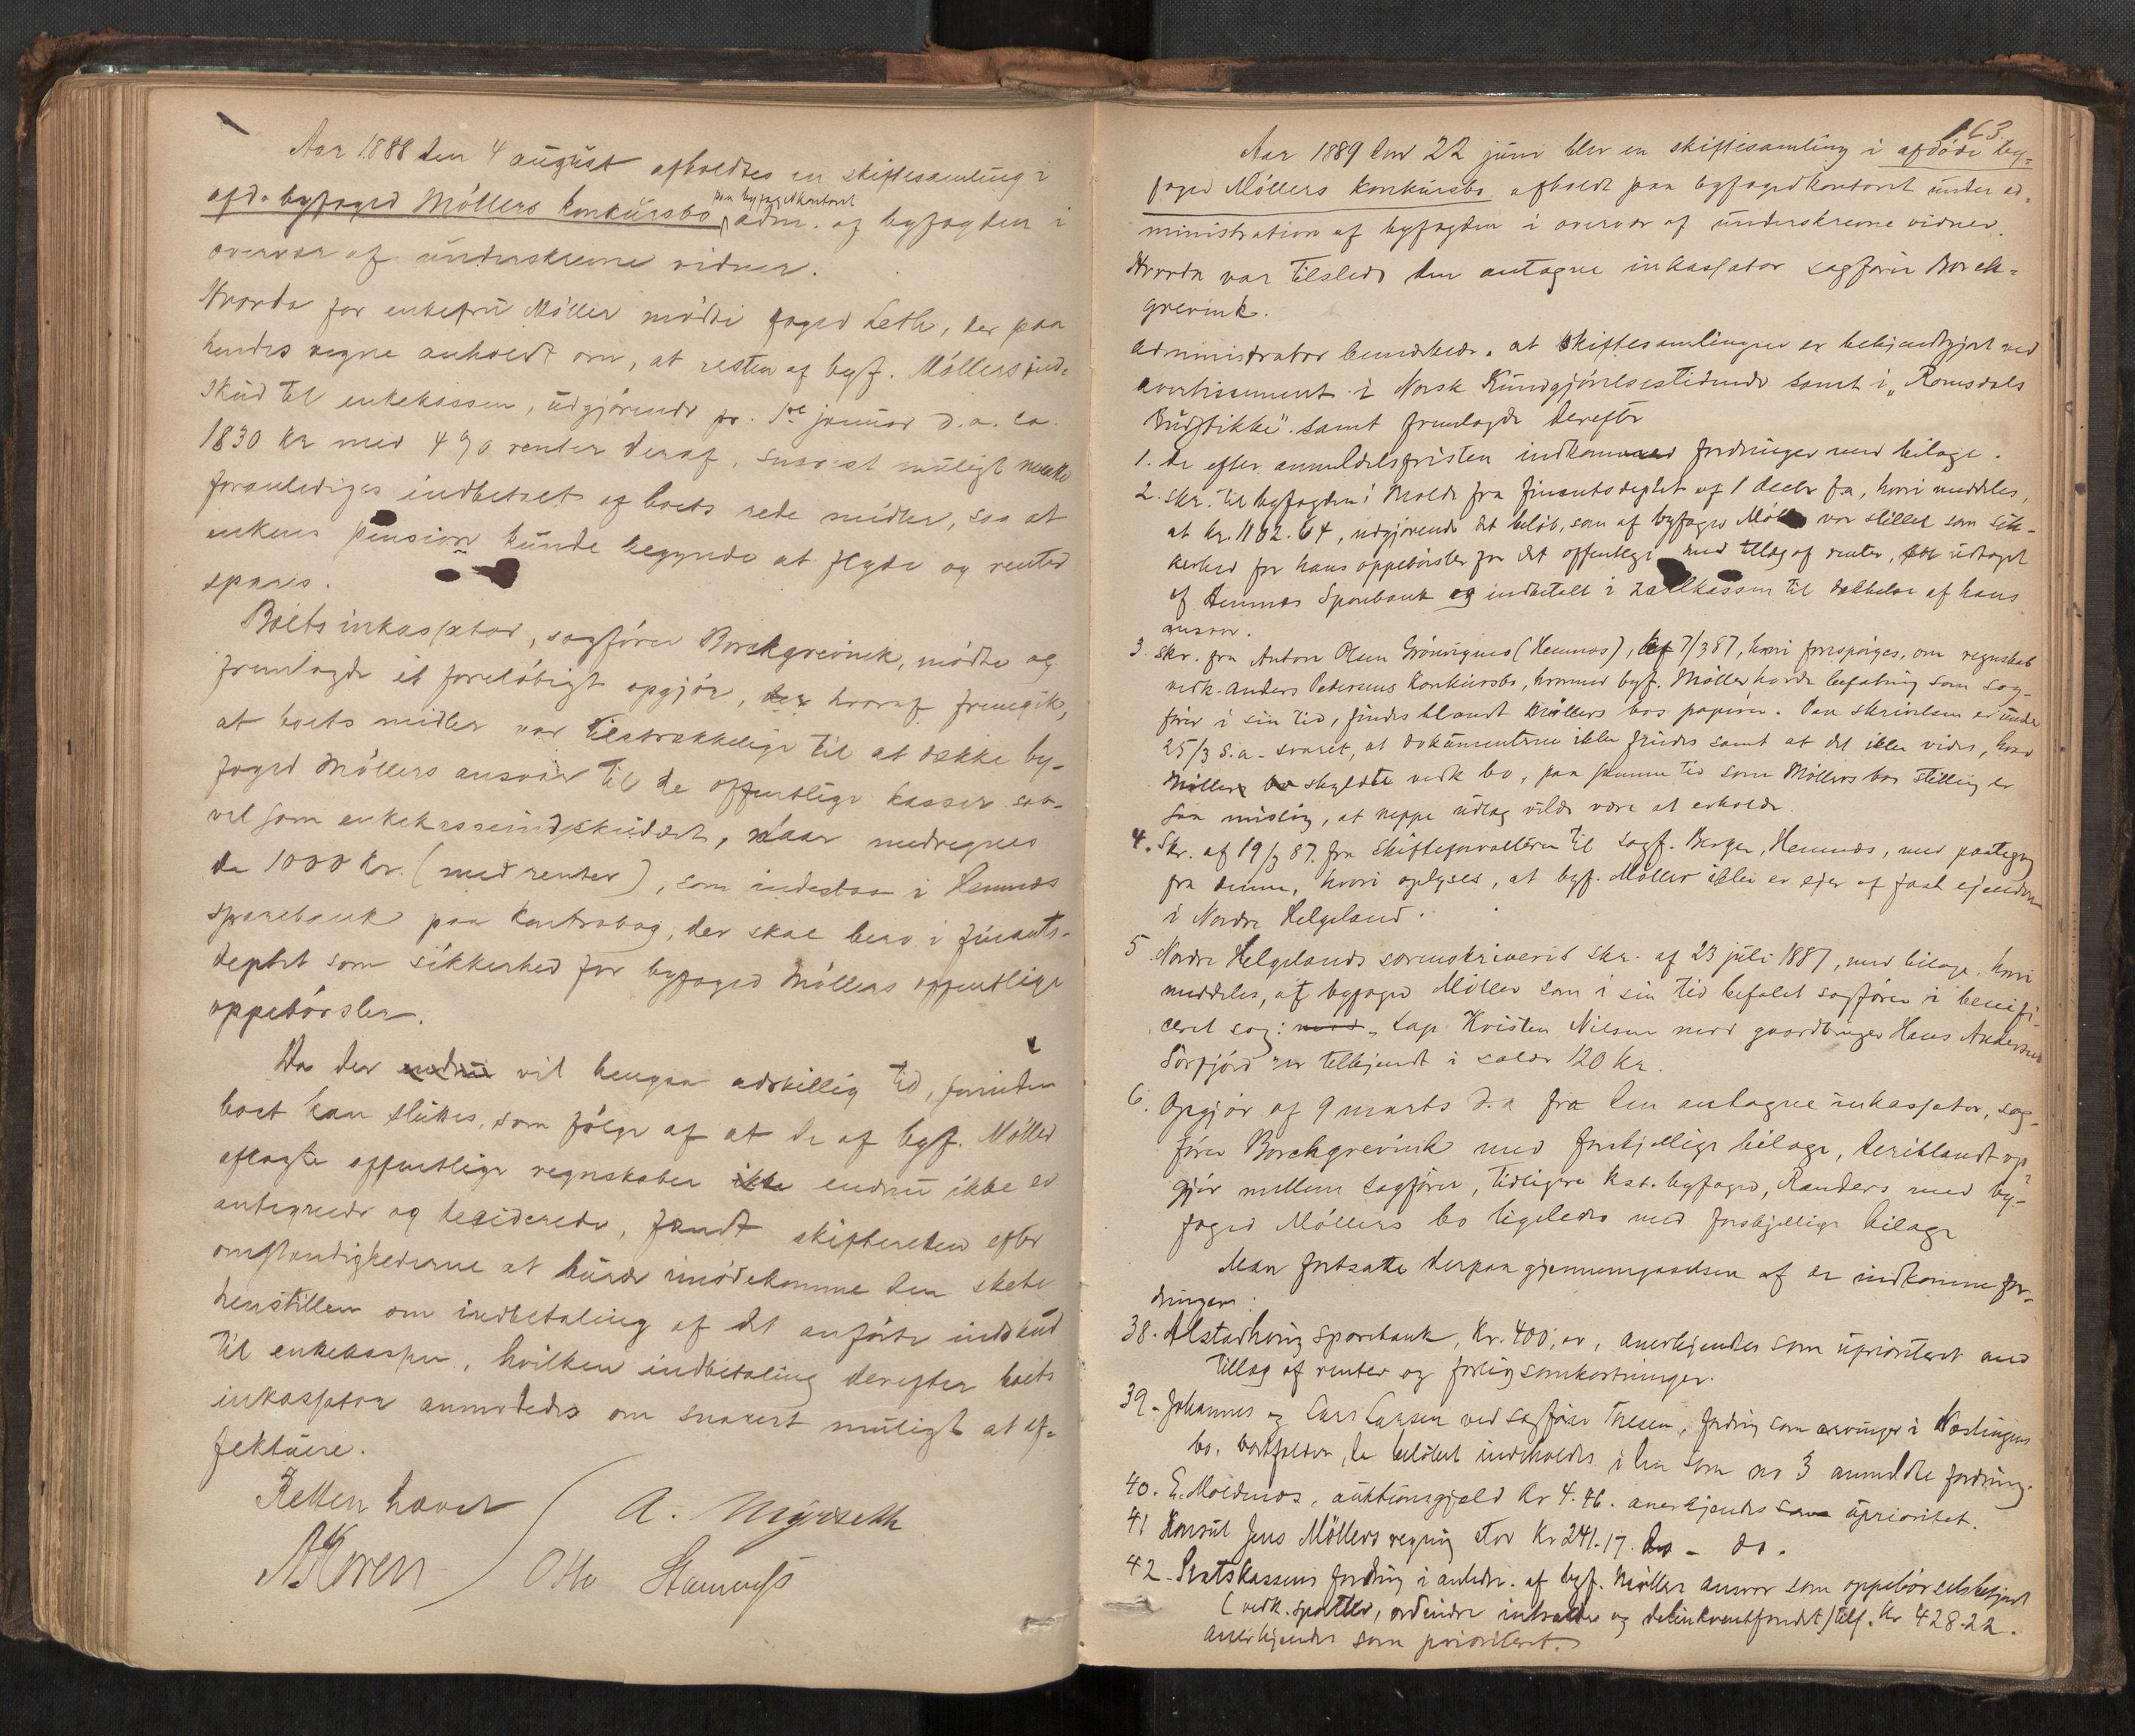 Aar 1888 den 4 august afholdtes en skiftesamling i
afd. byfoged Möllers konkursbo paa byfogedkontoret adm. af byfogden i
overvær af underskrevne vidner.
Hvorda for enkefru Möller mødte foged Leth, der paa
hendes vegne anholdt om, at resten af byf. Möllers ind-
skud til enkekassen, udgjørende pr. 1ste januar d.a. ca.
1830 kr med 4 % renter deraf, snarest muligt maatte
foranlediges indbetalt af boets rede midler, saa at
enkens pension kunde begynde at flyde og renter
spares.
Boets inkassator, sagfører Borchgrevink, mødte og
fremlagde et foreløbigt opgjør, der hvoraf fremgik,
at boets midler var tilstrækkelige til at dække by-
foged Möllers ansvar til de offentlige kasser saa-
vel som enkekasseindskuddet, naar medregnes
de 1000 kr. (med renter), som indestaa i Hemnæs
sparebank paa kontrabog, der skal bero i finants-
deptet som sikkerhed for byfoged Möllers offentlige
oppebørsler.
Da der endnu vil hengaa adskillig tid, forinden
boet kan sluttes, som følge af at de af byf. Möller
aflagte offentlige regnskaber ikke endnu ikke er
antegnede og deciderede, fandt skifteretten efter
omstændighederne at burde imødekomme den skete
henstillen om indbetaling af det anførte indskud
til enkekassen, hvilken indbetaling derefter boets
inkassator anmodedes om snarest muligt at ef-
fektuere.
Retten hævet
A. Myrseth
Koren
Otto
163.
Aar 1889 den 22 juni blev en skiftesamling i afdøde by-
foged Möllers konkursbo afholdt paa byfogedkontoret under ad-
ministration af byfogden i overvær af underskrevne vidner.
Hvorda var tilstede den antagne inkassator sagfører Borch-
grevink.
Administrator bemærkede, at skiftesamlingen er bekjendtgjort ved
avertissement i Norsk Kundgjørelsestidende samt i „Romsdals
Budstikke". samt fremlagde derefter
1. de efter anmeldelsfristen indkomne fordringer med bilage.
2. skr. til byfogden i Molde fra finantsdeptet af 1 decbr f.a., hvori meddeles,
at kr. 1162.64, udgjørende det beløb, som af byfoged Möller var stillet som sik-
kerhed for hans oppebørsler for det offentlige med tillæg af renter, er udtaget
af Hemnæs Sparebank og indbetalt i zahlkassen til dækkelse af hans
ansvar.
3. skr. fra Anton Olsen Grönvignes (Hemnæs), af 7/3 87, hvori forespørges, om regnskab
vedk. Anders Pedersens konkursbo, hvormed byf. Möller havde befatning som sag-
fører i sin tid, findes blandt Möllers bos papirer. Paa skrivelsen er under
25/3 s.a. svaret, at dokumenterne ikke findes samt at det ikke vides, hvad
Möller skyldte vedk bo, paa samme tid som Möllers bos stilling er
saa mislig, at neppe udlæg vilde være at erholde.
4. Skr. af 19/3 87. fra skifteforvalteren til sagf. Berger, Hemnæs, med paategning
fra denne, hvori oplyses, at byf. Möller ikke er ejer af fast ejendom
i Nordre Helgeland.
5. Nordre Helgelands sorenskriveris skr. af 23 juli 1887, med bilage, hvori
meddeles, at byfoged Möller som i sin tid befalet sagfører i benefi-
ceret sag: Lap Kristen Nilsen mod gaardbruger Hans Andersen
Sörfjord er tilkjendt i salær 120 kr.
6. Opgjør af 9 marts d.a fra den antagne inkassator, sag-
fører Borchgrevink med forskjellige bilage, deriblandt op-
gjør mellem sagfører, tidligere kst. byfoged, Randers med by-
foged Möllers bo ligeledes med forskjellige bilage
Man fortsatte derpaa gjennemgaaelsen af de indkomne for-
dringer:
38. Alstadhoug sparebank, kr. 400, er, anerkjendes som uprioriteret med
tillæg af renter og forligsomkostninger.
39. Johannes og Lars Larsen ved sagfører Thesen, fordring som arvinger i
bo, bortfalder, da beløbet indeholdes i den som no 3 anmeldte fordring.
40. E. Moldnæs, auktionsgjæld kr 4.46. anerkjendes som uprioritet.
41 Konsul Jens Möllers regning stor kr 241.17. do - do.
42. Statskassens fordring i anledn. af byf. Möllers ansvar som oppebørselsbetjent
(vedk. sportler, ordinære intrader og delinkventfondet) tils. kr 428.22.
anerkjendes som prioriteret.